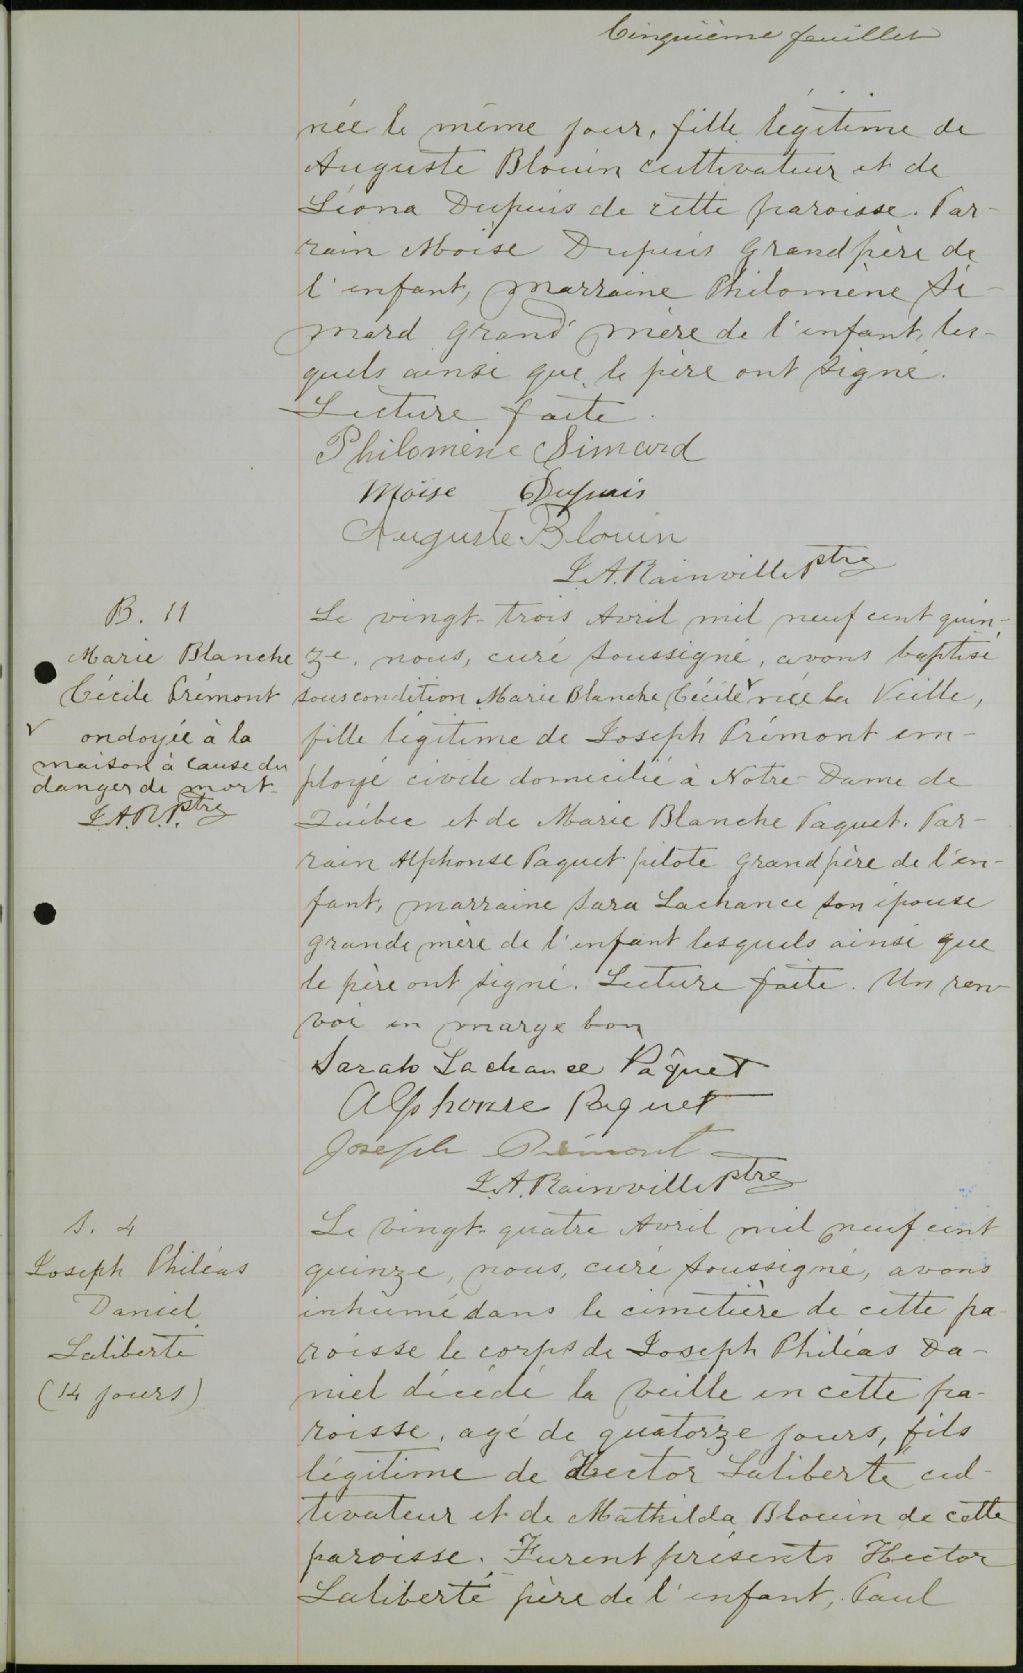 Cinquième feuillet
née le même jour, fille légitime de
Auguste Blouin cultivateur et de
Léona Dupuis de cette paroisse. Par-
rain Moïse Dupuis grandpère de
l'enfant, marraine Philomène Si-
mard grand'mère de l'enfant, les-
quels ainsi que le père ont signé.
Lecture faite.
Philomène Simard
Moïse Dupuis
Auguste Blouin
J.A. Rainville Ptre
B. 11
Marie Blanche
Cécile Prémont
v ondoyée à la
maison à cause du
danger de mort.
J.A.R. Ptre
Le vingt-trois Avril mil neuf cent quin-
ze, nous, curé soussigné, avons baptisé
sous condition Marie Blanche Cécile v née la Veille,
fille légitime de Joseph Prémont em-
ployé civile domicilié à Notre-Dame de
Québec et de Marie Blanche Paquet. Par-
rain Alphonse Paquet pilote grandpère de l'en-
fant, marraine Sara Lachance son épouse
grande mère de l'enfant lesquels ainsi que
le père ont signé. Lecture faite. Un ren-
voi en marge bon
Sarah Lachance Pâquet
Alphonse Paquet
Joseph Prémont
J.A. Rainville Ptre
S. 4
Joseph Philéas
Daniel
Laliberté
(14 jours)
Le vingt-quatre Avril mil neuf cent
quinze, nous, curé soussigné, avons
inhumé dans le cimetière de cette pa-
roisse le corps de Joseph Philéas Da-
niel décédé la veille en cette pa-
roisse, agé de quatorze jours, fils
légitime de Hector Laliberté cul-
tivateur et de Mathilda Blouin de cette
paroisse. Furent présents Hector
Laliberté père de l'enfant, Paul